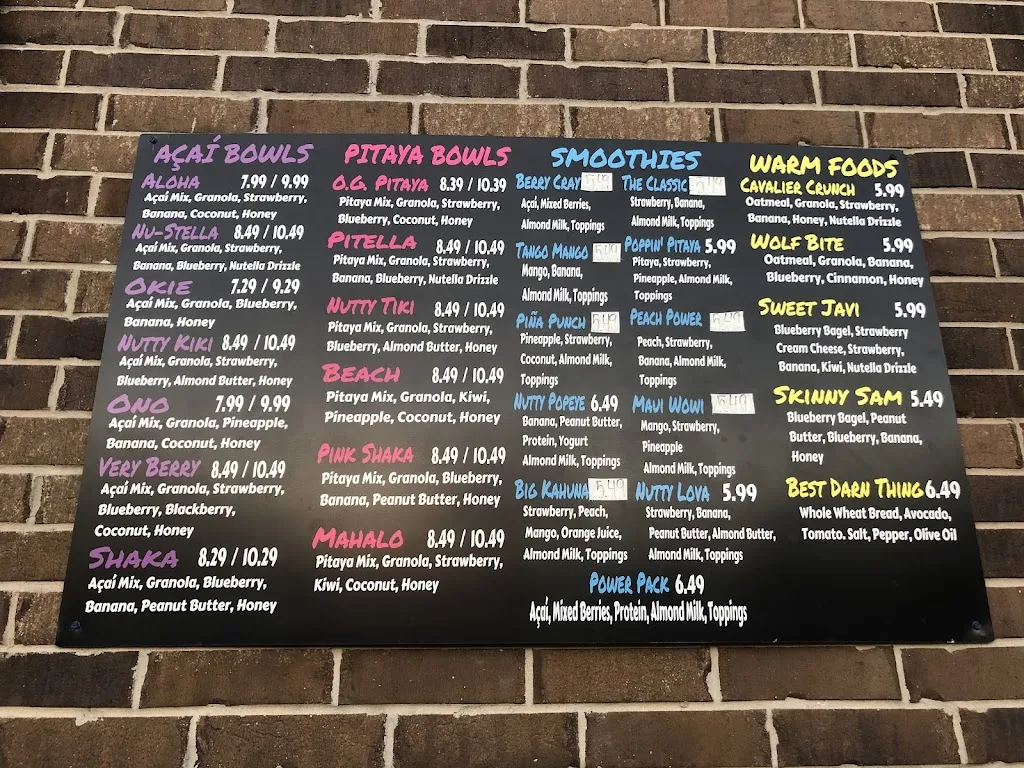 AÇAÍ BOWLS
ALOHA 7.99 / 9.99
Açaí Mix, Granola, Strawberry,
Banana, Coconut, Honey
NU-STELLA 8.49 / 10.49
Açaí Mix, Granola, Strawberry,
Banana, Blueberry, Nutella Drizzle
OKIE 7.29 / 9.29
Açaí Mix, Granola, Blueberry,
Banana, Honey
NUTTY KIKI 8.49 / 10.49
Açaí Mix, Granola, Strawberry,
Blueberry, Almond Butter, Honey
ONO 7.99 / 9.99
Açaí Mix, Granola, Pineapple,
Banana, Coconut, Honey
VERY BERRY 8.49 / 10.49
Açaí Mix, Granola, Strawberry,
Blueberry, Blackberry,
Coconut, Honey
SHAKA 8.29 / 10.29
Açaí Mix, Granola, Blueberry,
Banana, Peanut Butter, Honey
PITAYA BOWLS
O.G. PITAYA 8.39 / 10.39
Pitaya Mix, Granola, Strawberry,
Blueberry, Coconut, Honey
PITELLA 8.49 / 10.49
Pitaya Mix, Granola, Strawberry,
Banana, Blueberry, Nutella Drizzle
NUTTY TIKI 8.49 / 10.49
Pitaya Mix, Granola, Strawberry,
Blueberry, Almond Butter, Honey
BEACH 8.49 / 10.49
Pitaya Mix, Granola, Kiwi,
Pineapple, Coconut, Honey
PINK SHAKA 8.49 / 10.49
Pitaya Mix, Granola, Blueberry,
Banana, Peanut Butter, Honey
MAHALO 8.49 / 10.49
Pitaya Mix, Granola, Strawberry,
Kiwi, Coconut, Honey
SMOOTHIES
BERRY CRAY 5.49
Açaí, Mixed Berries,
Almond Milk, Toppings
TANGO MANGO 5.49
Mango, Banana,
Almond Milk, Toppings
PIÑA PUNCH 5.49
Pineapple, Strawberry,
Coconut, Almond Milk,
Toppings
NUTTY POPEYE 6.49
Banana, Peanut Butter,
Protein, Yogurt
Almond Milk, Toppings
BIG KAHUNA 5.49
Strawberry, Peach,
Mango, Orange Juice,
Almond Milk, Toppings
THE CLASSIC 5.49
Strawberry, Banana,
Almond Milk, Toppings
POPPIN' PITAYA 5.99
Pitaya, Strawberry,
Pineapple, Almond Milk,
Toppings
PEACH POWER 5.49
Peach, Strawberry,
Banana, Almond Milk,
Toppings
MAUI WOWI 5.49
Mango, Strawberry,
Pineapple
Almond Milk, Toppings
NUTTY LOVA 5.99
Strawberry, Banana,
Peanut Butter, Almond Butter,
Almond Milk, Toppings
POWER PACK 6.49
Açaí, Mixed Berries, Protein, Almond Milk, Toppings
WARM FOODS
CAVALIER CRUNCH 5.99
Oatmeal, Granola, Strawberry,
Banana, Honey, Nutella Drizzle
WOLF BITE 5.99
Oatmeal, Granola, Banana,
Blueberry, Cinnamon, Honey
SWEET JAVI 5.99
Blueberry Bagel, Strawberry
Cream Cheese, Strawberry,
Banana, Kiwi, Nutella Drizzle
SKINNY SAM 5.49
Blueberry Bagel, Peanut
Butter, Blueberry, Banana,
Honey
BEST DARN THING 6.49
Whole Wheat Bread, Avocado,
Tomato. Salt, Pepper, Olive Oil